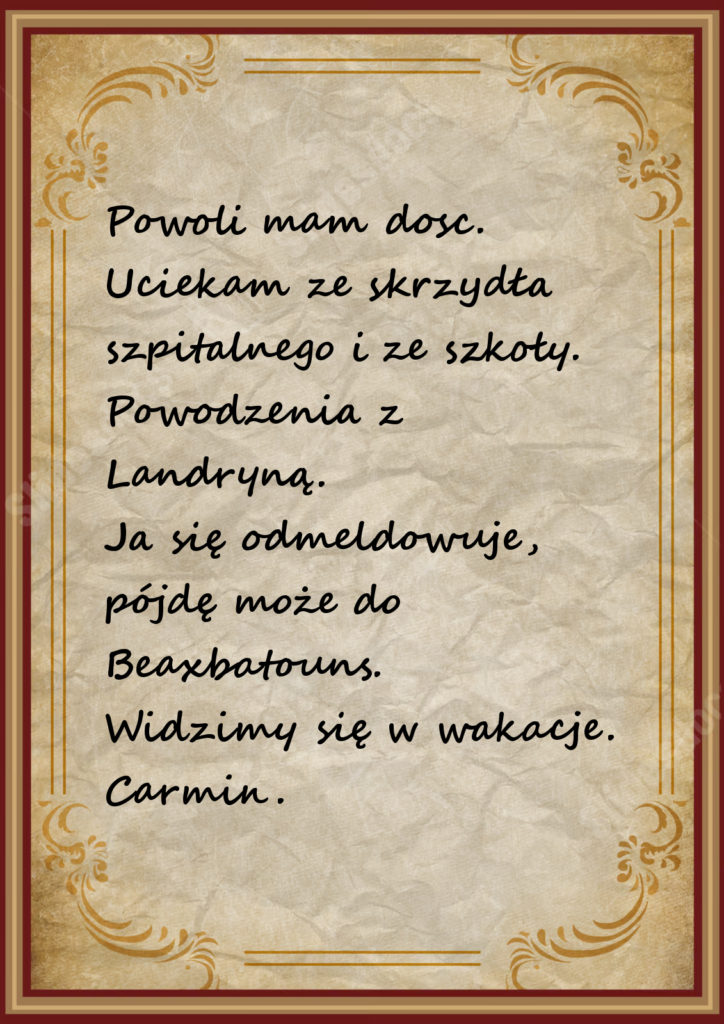 Powoli mam dosc.
Uciekam ze skrzydła
szpitalnego i ze szkoły.
Powodzenia z
Landryną.
Ja się odmeldowuje,
pójdę może do
Beaxbatouns.
Widzimy się w wakacje.
Carmin.